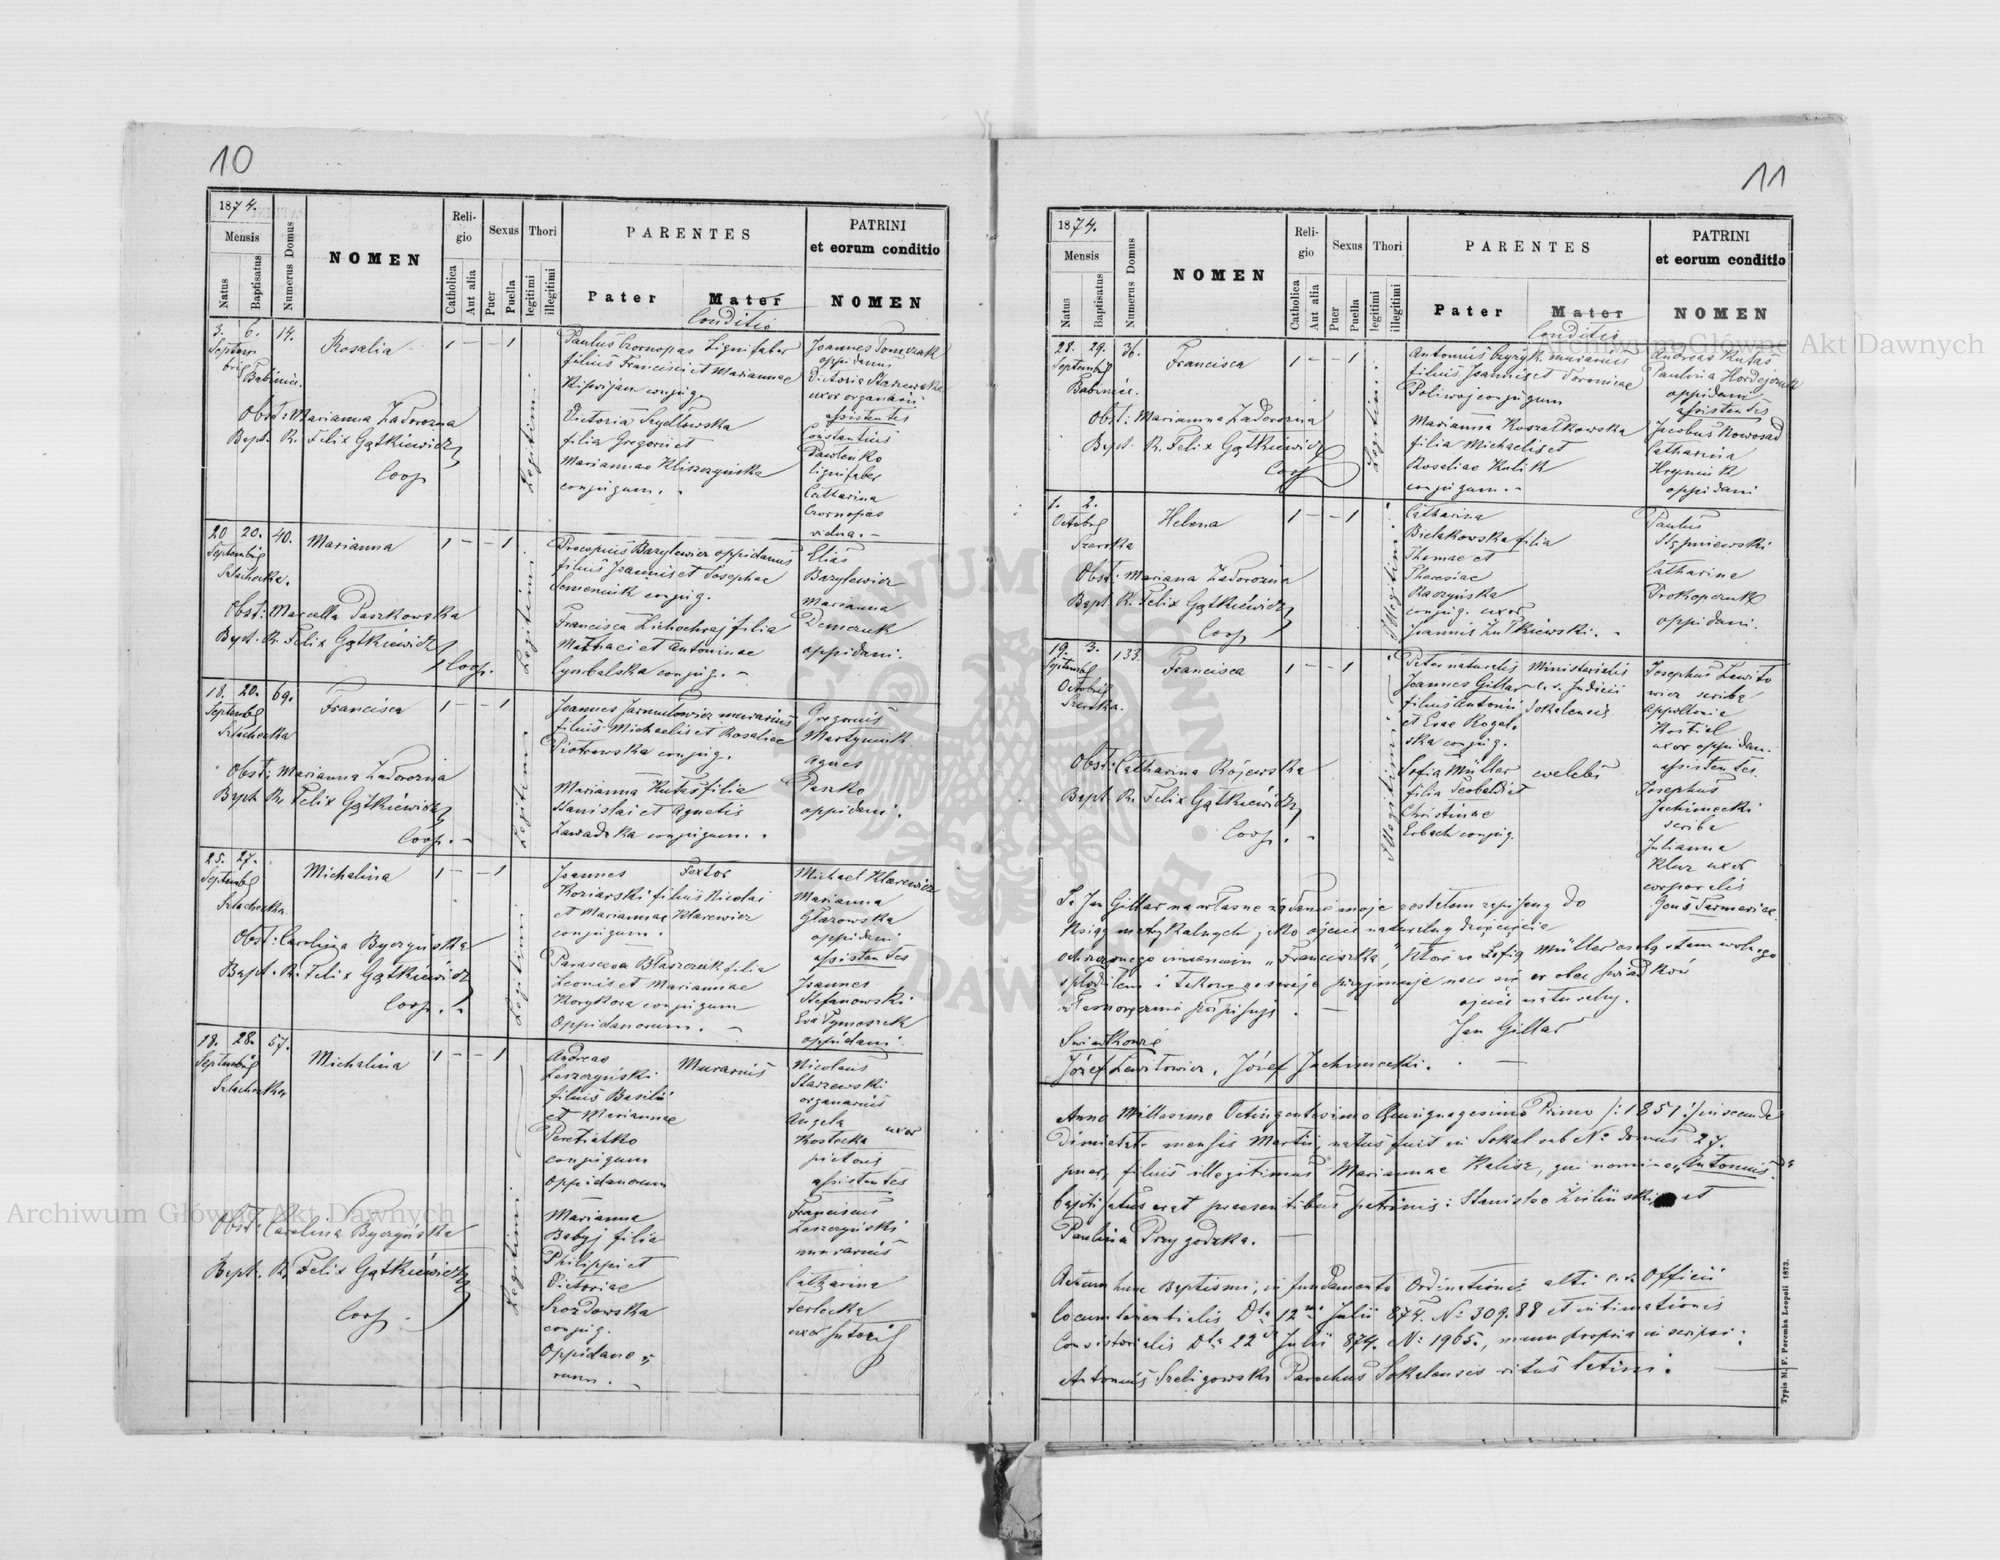 10
1874.
Mensis
Natus
Baptisatus
Numerus Domus
NOMEN
Religio
Catholica
Aut alia
Sexus
Puer
Puella
Thori
legitimi
illegitimi
PARENTES
Pater
Mater
Conditio
PATRINI
et eorum conditio
NOMEN
3. 6. 14.
Babiniec.
Rosalia
1 - - 1
Legitimi
Obst: Marianna Zadorozna
Bapt. R. Felix Gątkiewicz
Coop
Paulus Czornopas Lignifaber
filius Francisci et Mariannae
conjug.
Victoria Szydłowska
filia Gregorii et
Mariannae Kliszczyńska
conjugum.
Joannes Tomczak
oppidanus
Victoria Starzewska
uxor organarii
assistentes
Constantius
Pawlenko
lignifaber
Catharina
Czornopas
vidua.
20 20. 40.
Septembris
Szlachecka.
Marianna
1 - - 1
Legitimi
Obst: Marcella Paszkowska
Bapt. R. Felix Gątkiewicz
Coop.
Procopius Bazylewicz oppidanus
filius Joannis et Josephae
Semeniuk conjug.
Francisca Lichochraj filia
Mathaei et Antoninae
Cymbalska conjug.
Elias
Bazylewicz
Marianna
Demczuk
oppidani.
18. 20. 69.
Septembris
Szlachecka
Francisca
1 - - 1
Legitimi
Obst: Marianna Zadorozna
Bapt R. Felix Gątkiewicz
Coop.
Joannes Jarmułowicz murarius
filius Michaelis et Rosaliae
Piotrowska conjug.
Marianna Kutas filia
Stanislai et Agnetis
Zawadzka conjugum.
Gregorius
Martyniuk
Agnes
Paszko
oppidani.
25. 27.
Septembris
Szlachecka.
Michalina
1 - - 1
Legitimi
Obst: Carolina Byczyńska
Bapt. R. Felix Gątkiewicz
Coop.
Joannes Textor
Koziarski filius Nicolai
et Mariannae Klarewicz
conjugum.
Parasceva Błaszczuk filia
Leonis et Mariannae
Korykora conjugum
Oppidanorum.
Michael Klarewicz
Marianna
Głazowska
oppidani
assistentes
Joannes
Stefanowski
Eva Tymoszek
oppidani.
18. 28. 57.
Septembris
Szlachecka
Michalina
1 - - 1
Legitimi
Obst: Carolina Byczyńska
Bapt. R. Felix Gątkiewicz
Coop.
Andreas Murarius
Leszczyński
filius Basilii
et Mariannae
Peretiatko
conjugum
Oppidanorum
Marianna
Babyj filia
Philippi et
Victoriae
Szozdowska
conjug.
Oppidano
rum.
Nicolaus
Starzewski
organarius
Angela uxor
Kostecka
pictoris
assistentes
Franciscus
Leszczyński
murarius
Catharina
Serlecka
uxor sutoris
11
1874.
Mensis
Natus
Baptisatus
Numerus Domus
NOMEN
Religio
Catholica
Aut alia
Sexus
Puer
Puella
Thori
legitimi
illegitimi
PARENTES
Pater
Mater
Conditio
PATRINI
et eorum conditio
NOMEN
28. 29. 36.
Septembris
Babiniec.
Francisca
1 - - 1
Legitimi
Obst: Marianna Zadorozna
Bapt. R. Felix Gątkiewicz
Coop
Antonius Czyżyk murarius
filius Joannis et
conjugum
Marianna Koszałkowska
filia Michaelis et
Rosaliae Kulik
conjugum.
Andreas Kutas
Paulina Hordejczuk
oppidani
assistentes
Jacobus Nowosad
Catharina
Hryniuk
oppidani
1. 2.
Octobris
Szerska
Helena
1 - - 1
Illegitimi
Obst: Mariana Zadorozna
Bapt R. Felix Gątkiewicz
Coop
Catharina
Bielakowska filia
Thomae et
Theresiae
Raczyńska
conjug. uxor
Joannis Żułkiewski.
Paulus
Stępniewski
Catharina
Prokopczuk
oppidani.
19. 3. 133.
Septembris
Octobris
Szerska.
Francisca
1 - - 1
Illegitimi
Obst: Catharina Kojewska
Bapt R. Felix Gątkiewicz
Coop.
Pater naturalis Ministerialis
Joannes Gillar c. r. Judicii
filius Antonii Sokalensis
et Evae Rogal
ska conjug.
Sofia Müller caelebs
filia Teobaldi et
Christinae
Erbach conjug.
Josephus Lewito
wicz scriba
Appollonia
Kostiel
uxor oppidan.
assistentes.
Josephus
Jachimecki
scriba
Julianna
Klus uxor
corporalis
Ja Jan Gillar na własne żądanie moje zostałem zapisany do
Ksiąg metrykalnych jako ojciec naturalny dziecięcia
ochrzconego imieniem „Franciszka”, które ze Zofią Müller osobą stanu wolnego
spłodziłem i takowe za swoje przyjmuję na co się w obec świadków
własnoręcznie podpisuję. —
ojciec naturalny.
Jan Gillar
Świadkowie
Józef Lewitowicz. Józef Jachimecki.
Anno Millesimo Octingentesimo Quinquagesimo Primo /:1851:/ in secunda
dimietate mensis Martii, natus fuit in Sokal sub No domus 27.
puer, filius illegitimus Mariannae Kalisz, qui nomine „Antonius”
baptisatus erat praesentibus patrinis: Stanislao Zieliński et
Paulina Przygodzka.
Actum hunc Baptismi, in fundamento Ordinationis alti c. r. Officii
locumtenentialis Dto 12ma Julii 874. No 309.88 et intimationis
Consistorialis Dto 22da Julii 874. No 1965., manu propria inscripsi:
Antonius Szeligowski Parochus Sokalensis ritus latini.
Typis M. F. Poremba Leopoli 1873.
Archiwum Główne Akt Dawnych
Archiwum Główne Akt Dawnych
ARCHIWUM GŁÓWNE AKT DAWNYCH